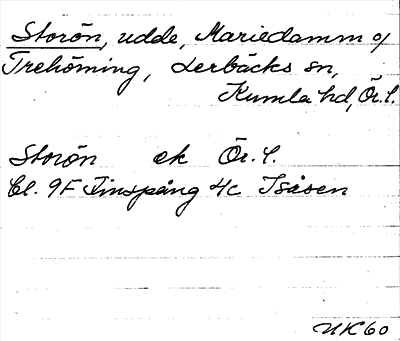 Storön, udde, Mariedamm o/
Trehörning, Lerbäcks sn,
Kumla hd, Ör.l.
Storön ek Ör.l.
Bl. 9F Finspång 4c Isåsen
UK 60